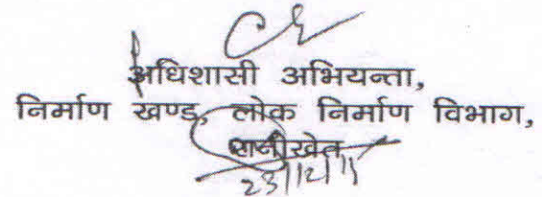 अधिशासी अभियन्ता,
निर्माण खण्ड, लोक निर्माण विभाग,
रानीखेत
23/12/11